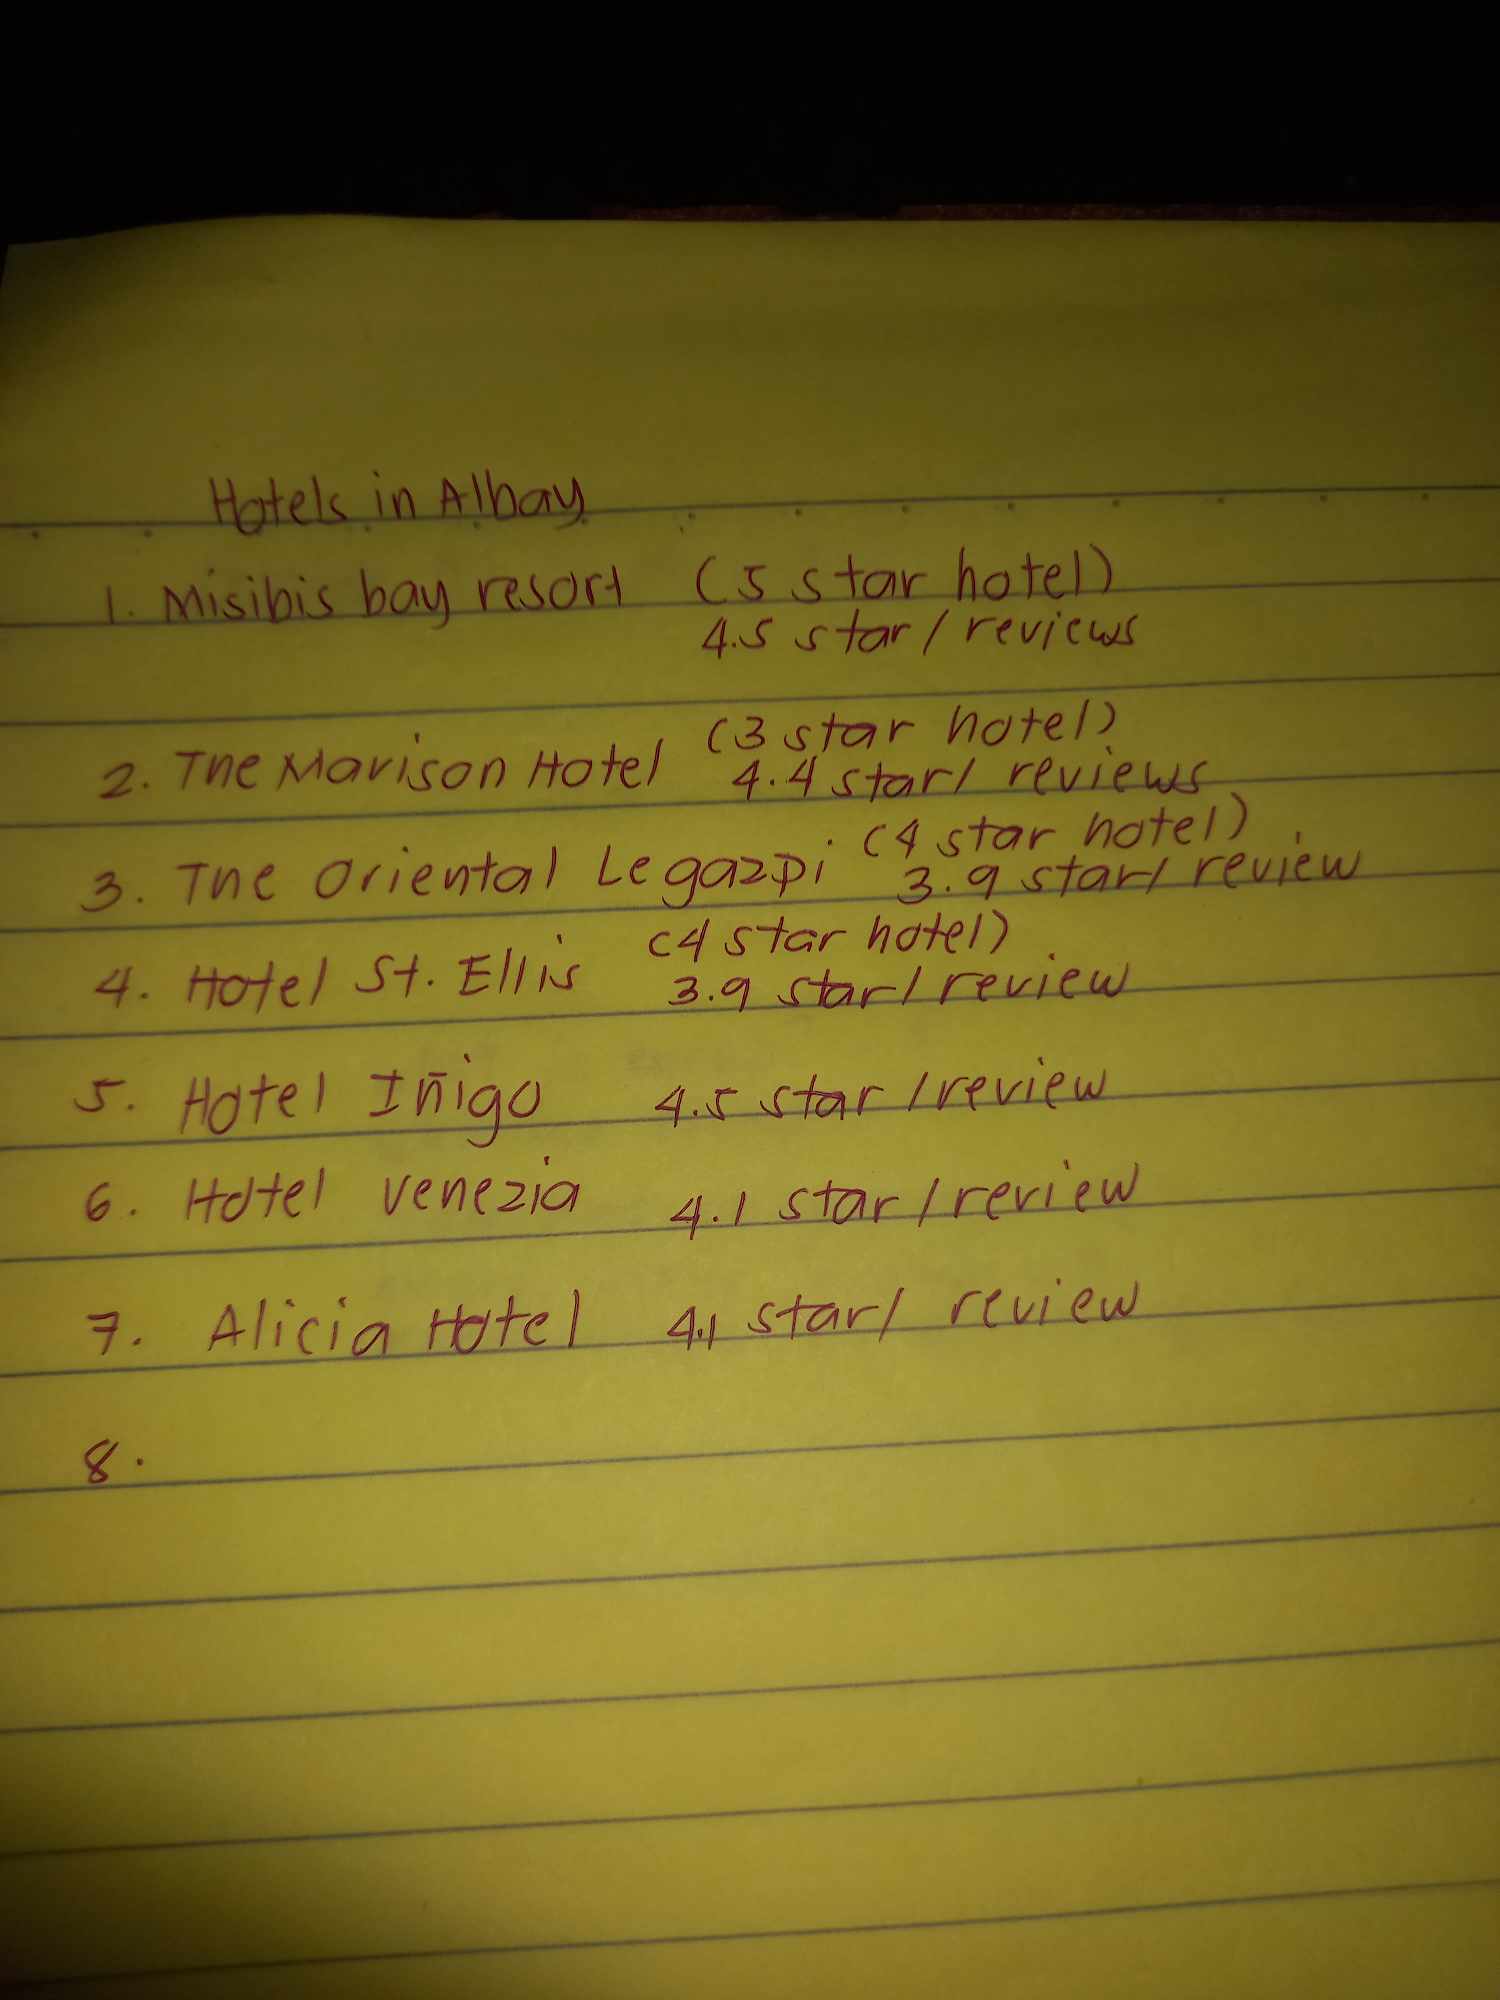 Hotels in Albay
1. Misibis bay resort (5 star hotel)
4.5 star/reviews
(3 star hotel)
2. The Marison Hotel 4.4 star/ reviews
(4 star hotel)
3. The Oriental Legazpi 3.9 star/ review
(4 star hotel)
4. Hotel St. Ellis 3.9 star/review
5. Hotel Iñigo 4.5 star/review
6. Hotel venezia 4.1 star/review
7. Alicia Hotel 4.1 star/ review
8.